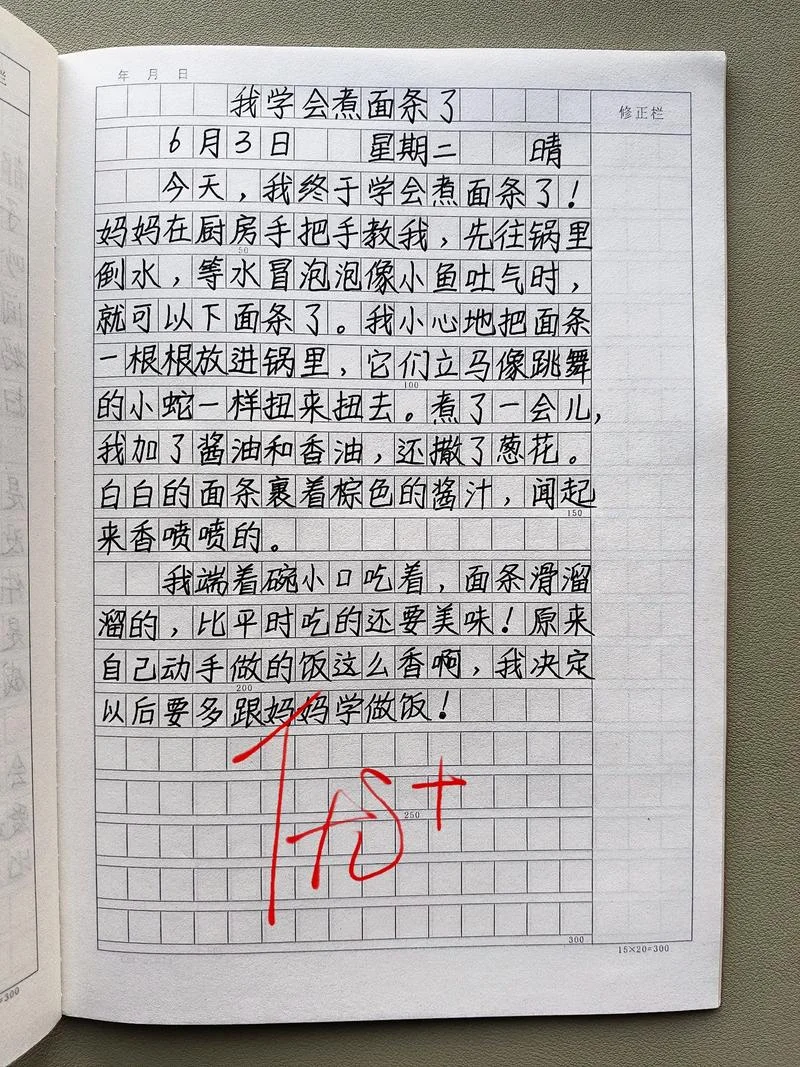 年 月 日
修正栏
我学会煮面条了
6月3日 星期二 晴
今天，我终于学会煮面条了！
妈妈在厨房手把手教我，先往锅里
50
倒水，等水冒泡泡像小鱼吐气时，
就可以下面条了。我小心地把面条
一根根放进锅里，它们立马像跳舞
100
的小蛇一样扭来扭去。煮了一会儿，
我加了酱油和香油，还撒了葱花。
白白的面条裹着棕色的酱汁，闻起
150
来香喷喷的。
我端着碗小口吃着，面条滑溜
溜的，比平时吃的还要美味！原来
自己动手做的饭这么香啊，我决定
200
以后要多跟妈妈学做饭！
优+
250
300
15×20=300